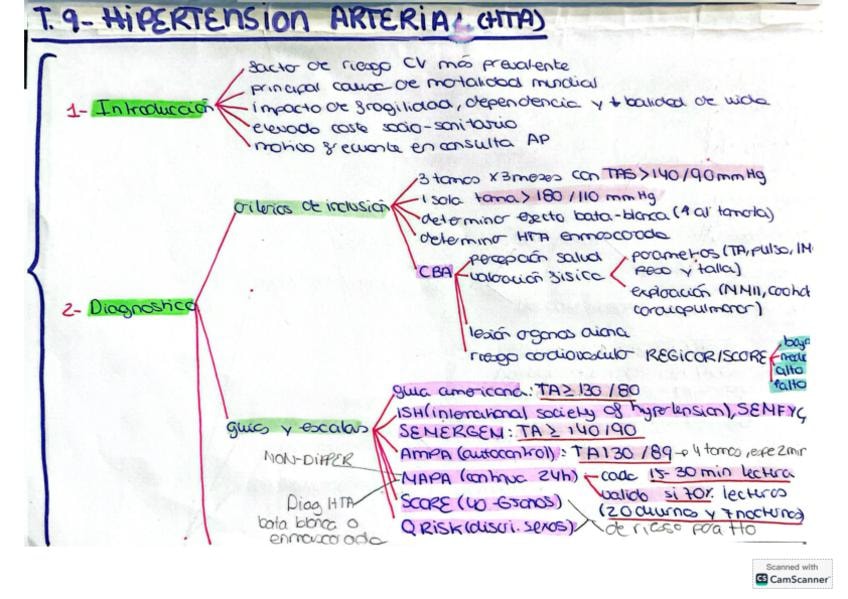 T.9- HIPERTENSION ARTERIAL (HTA)
1- Introducción
factor de riesgo CV más prevalente
principal causa de mortalidad mundial
impacto de fragilidad, dependencia y ↓ calidad de vida
elevado coste socio-sanitario
motivo frecuente en consulta AP
2- Diagnostico
criterios de inclusión
3 tomas x 3 meses con TAS > 140/90 mm Hg
1 sola toma > 180/110 mm Hg
determinar efecto bata-blanca (↑ al tomarla)
determinar HTA enmascarada
CBA
percepción salud
valoración física
parametros (TA, pulso, IM
peso y talla)
exploración (MMII,
cardiopulmonar)
lesión organos diana
riesgo cardiovascular REGICOR/SCORE
bajo
alto
↑alto
guias y escalas
guia americana: TA ≥ 130/80
ISH (international society of hypertension), SEMFYC
SEMERGEN: TA ≥ 140/90
AMPA (autocontrol): TA 130/89 → 4 tomas, 2 min
NON-DIPPER
MAPA (continua 24h)
cada 15-30 min lectura
valido si 70% lecturas
(20 diurnos y 7 nocturnos)
Diag HTA
bata blanca o
enmascarada
SCORE (40-65 años)
Q RISK (discri. sexos)
de riesgo para tto
Scanned with
CS CamScanner